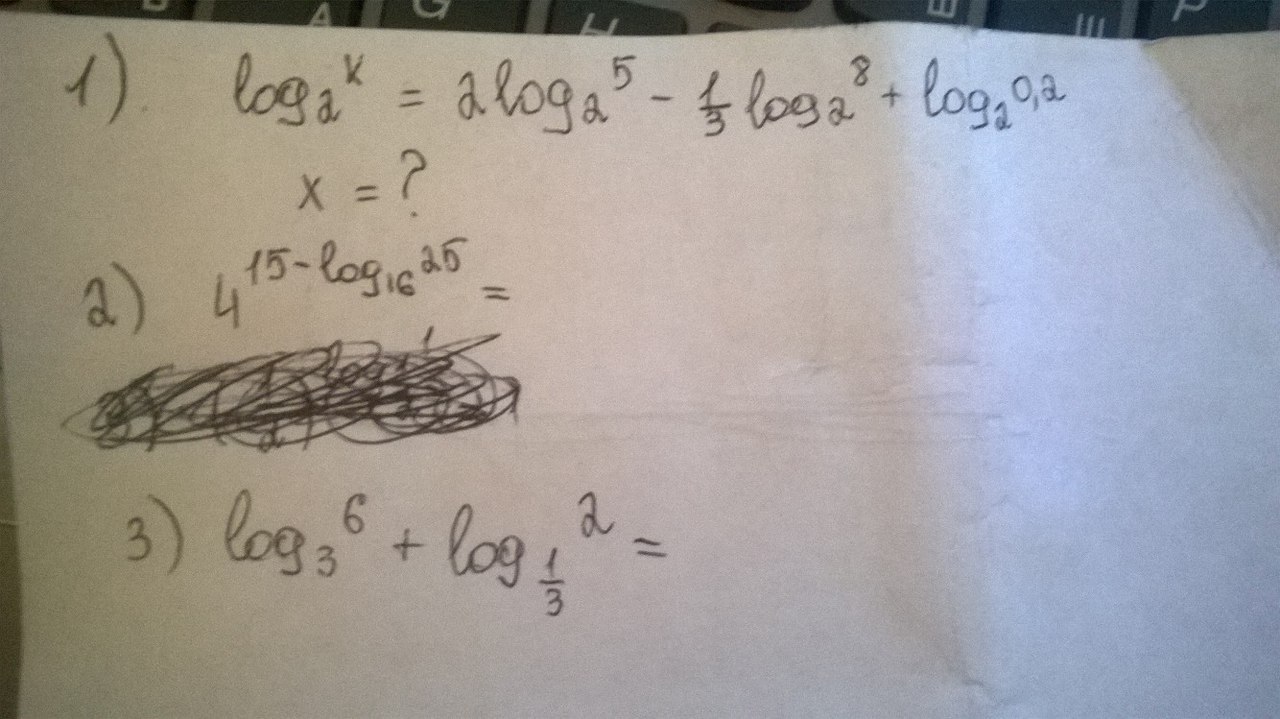 1). log₂ˣ = 2log₂⁵ - 1/3 log₂⁸ + log₂^0,2
x = ?
2) 4^(15-log₁₆25) =
3) log₃⁶ + log_(1/3)² =